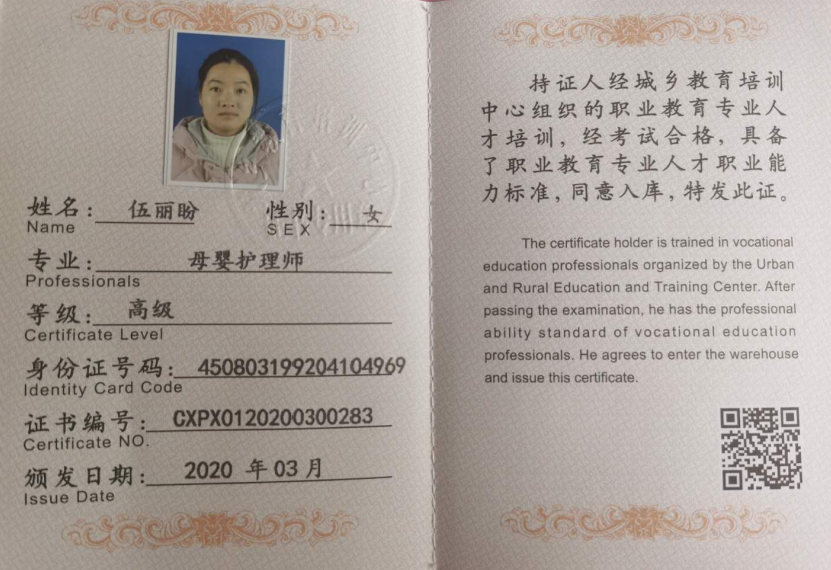 姓名: 伍丽盼 性别: 女
Name SEX
专业: 母婴护理师
Professionals
等级: 高级
Certificate Level
身份证号码: 450803199204104969
Identity Card Code
证书编号: CXPX0120200300283
Certificate NO.
颁发日期: 2020 年 03 月
Issue Date
持证人经城乡教育培训
中心组织的职业教育专业人
才培训，经考试合格，具备
了职业教育专业人才职业能
力标准，同意入库，特发此证。
The certificate holder is trained in vocational
education professionals organized by the Urban
and Rural Education and Training Center. After
passing the examination, he has the professional
ability standard of vocational education
professionals. He agrees to enter the warehouse
and issue this certificate.